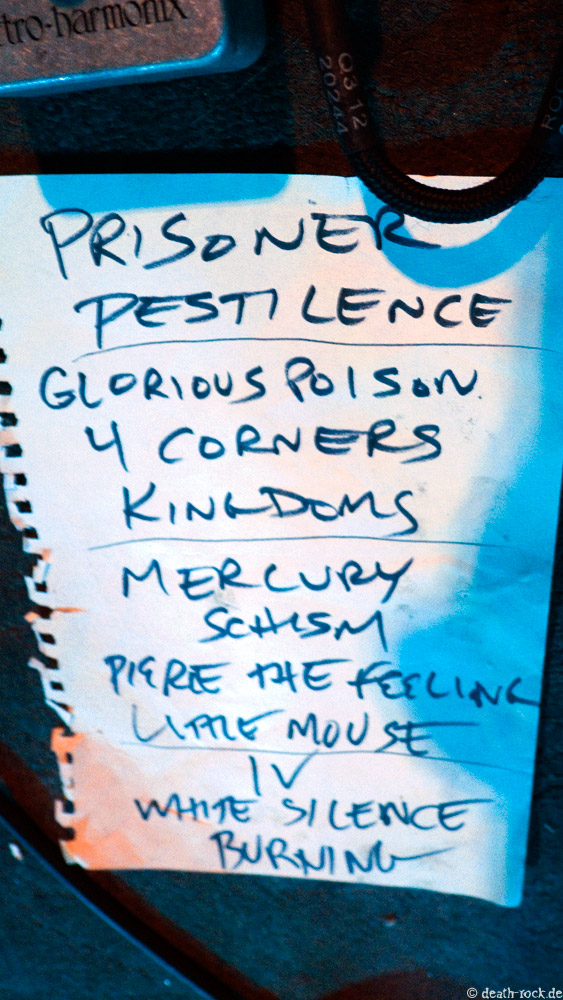 tro-harmonix
Q3 12
20244
RO
PRISONER
PESTILENCE
GLORIOUS POISON
4 CORNERS
KINGDOMS
MERCURY
SCHISM
PIERCE THE FEELING
LITTLE MOUSE
IV
WHITE SILENCE
BURNING
© death-rock.de